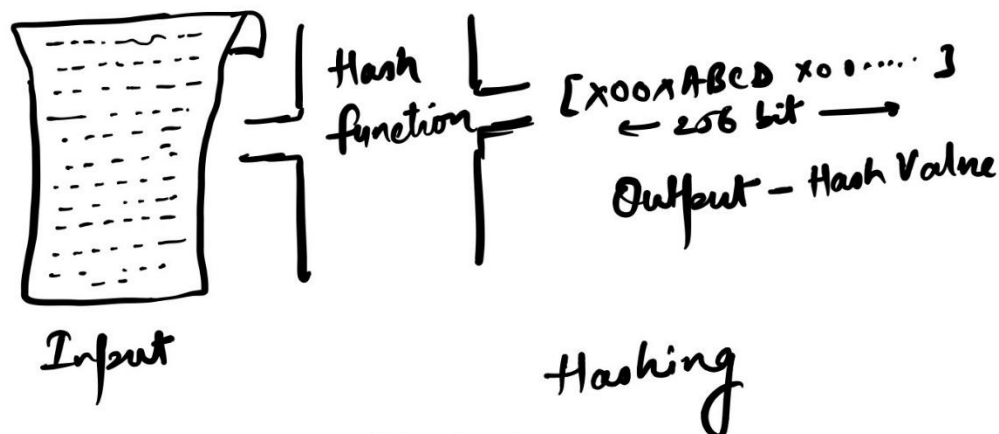 Hash
function
[X00XABCD X00......]
← 256 bit →
Output - Hash Value
Input
Hashing